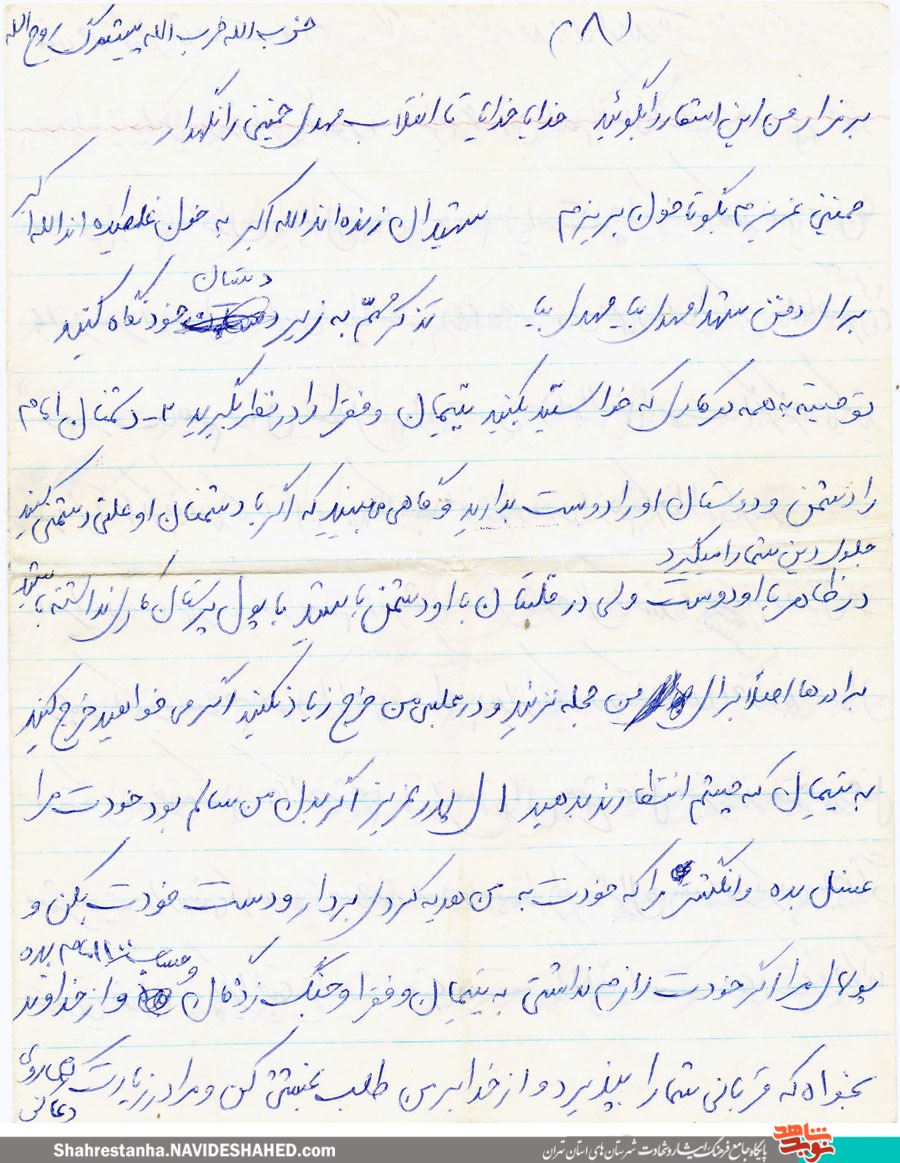 (۸)
حزب الله حزب الله پیشمرگ روح الله
بر مزار من این اشعار را بگوئید خدایا خدایا تا انقلاب مهدی خمینی را نگهدار
خمینی عزیزم بگو تا خون بریزم شهیدان زنده اند الله اکبر به خون غلطیده اند الله اکبر
برای دفن شهدا مهدی بیا مهدی بیا تذکر مهمّ به زیر دستان خود نگاه کنید
توصیه به همه هر کاری که خواستید بکنید یتیمان و فقرا را در نظر بگیرید ۲- دشمنان امام
را دشمن و دوستان او را دوست بدارید و گاهی می بینید که اگر با دشمنان او علنی دشمنی کنید
جلوی دین شما را میگیرد
در ظاهر با او دوست ولی در قلبتان با او دشمن باشید با پول پرستان کاری نداشته باشید
برادرها اصلاً برای من حجله نزنید و در مجلس من خرج زیاد نکنید اگر می خواهید خرج کنید
به یتیمان که چشم انتظارند بدهید ای پدر عزیز اگر بدن من سالم بود خودت مرا
غسل بده و انگشتر مرا که خودت به من هدیه کردی بردار و دست خودت بکن و
پولهای مرا اگر خودت لازم نداشتی به یتیمان و فقرا و جنگ زدگان و حساب ۱۰۰ امام بده و از خداوند
بخواه که قربانی شما را بپذیرد و از خدا برای من طلب بخشش کن و مرا در زیارت
دعای
Shahrestanha.NAVIDESHAHED.com
پایگاه جامع فرهنگ ایثار و شهادت شهرستان های استان تهران
نوید شاهد